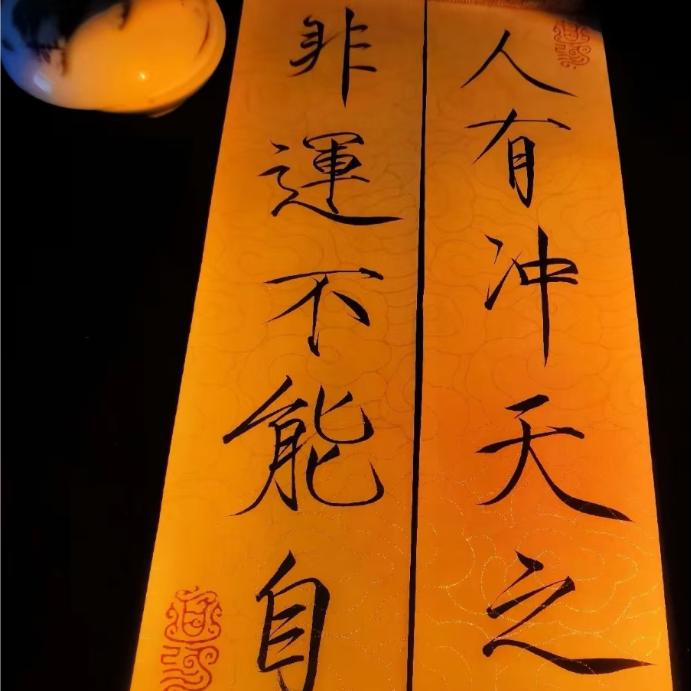 人有冲天之
非運不能自